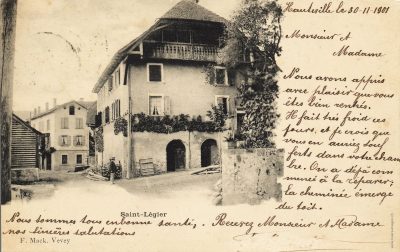 Hauteville le 30-11-1901
Monsieur et
Madame
Nous avons appris
avec plaisir que vous
êtes bien rentrés.
Il fait très froid ces
jours, et je crois que
vous en auriez souf-
ferts dans votre cham-
bre. On a déjà com-
mencé à la réparer;
la cheminée émerge
du toit.
Saint-Légier
F. Mack. Vevey
Nous sommes tous en bonne santé, Recevez Monsieur et Madame
nos sincères salutations